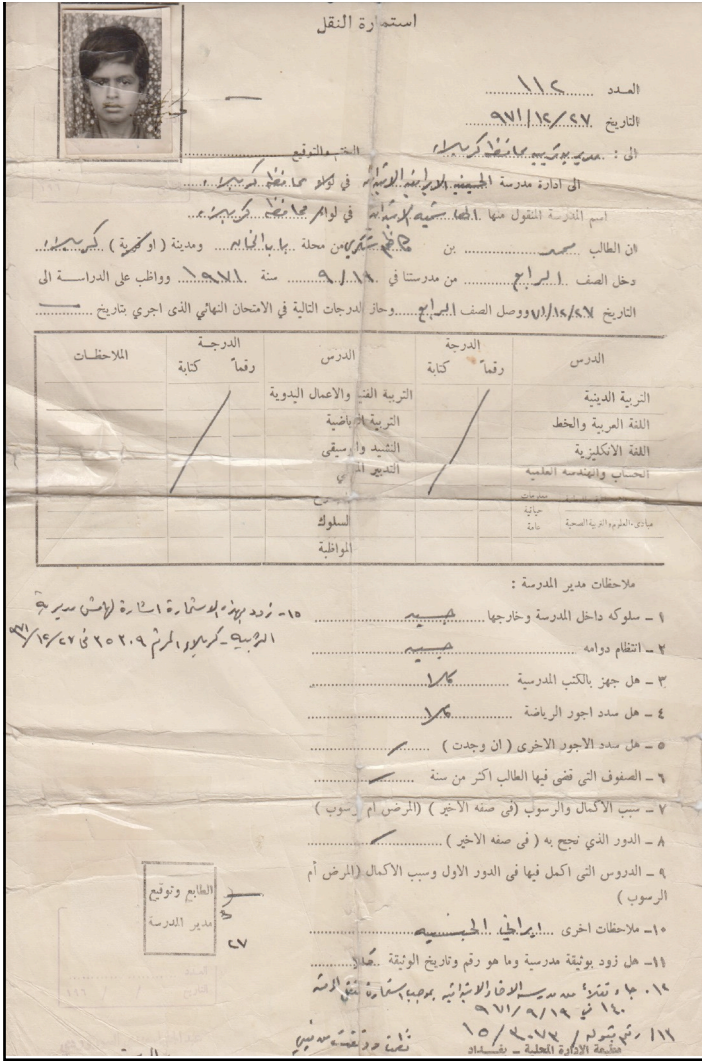 استمارة النقل
العدد ١١٢
التاريخ ٩٧١/١٢/٢٧
الى : مديرية تربية محافظة كربلاء الختم والتوقيع
الى ادارة مدرسة الحسينية الايرانية الابتدائية في لواء محافظة كربلاء
اسم المدرسة المنقول منها الهاشمية الابتدائية في لواء محافظة كربلاء
ان الطالب محمد بن كاظم شكري من محلة باب الخان ومدينة ( او قرية ) كربلاء
دخل الصف الرابع من مدرستنا في ٩/١٩ سنة ١٩٧١ وواظب على الدراسة الى
التاريخ ٧١/١٢/٢٧ ووصل الصف الرابع وحاز الدرجات التالية في الامتحان النهائي الذى اجري بتاريخ
الدرس الدرجة الدرس الدرجة الملاحظات
رقماً كتابة رقماً كتابة
التربية الدينية التربية الفنية والاعمال اليدوية
اللغة العربية والخط التربية الرياضية
اللغة الانكليزية النشيد والموسيقى
الحساب والهندسة العلمية التدبير المنزلي
مبادىء العلوم والتربية الصحية معلومات حياتية عامة السلوك
المواظبة
ملاحظات مدير المدرسة :
١ – سلوكه داخل المدرسة وخارجها جيد
٢ – انتظام دوامه جيد
٣ – هل جهز بالكتب المدرسية كلا
٤ – هل سدد اجور الرياضة كلا
٥ – هل سدد الاجور الاخرى ( ان وجدت )
٦ – الصفوف التى قضى فيها الطالب اكثر من سنة
٧ – سبب الاكمال والرسوب (فى صفه الاخير ) (المرض ام رسوب )
٨ – الدور الذي نجح به ( فى صفه الاخير )
٩ – الدروس التى اكمل فيها فى الدور الاول وسبب الاكمال (المرض أم
الرسوب )
١٠– ملاحظات اخرى ايراني الجنسية
١١– هل زود بوثيقة مدرسية وما هو رقم وتاريخ الوثيقة كلا
١٢– جاء نقلاً من مدرسة الاخاء الابتدائية بموجب استمارة نقل المرقمة
١٤٠ في ٩٧١/٩/١٩
١٣/ رقم قبوله / ١٥/٣٠٧٣
مطبعة الادارة المحلية – بغداد
١٥– زود بهذه الاستمارة اشارة لهامش مديرية
التربية – كربلاء المرقم ٣٥٢٠٩ في ٩٧١/١٢/٢٧
الطابع وتوقيع
مدير المدرسة
٢٧